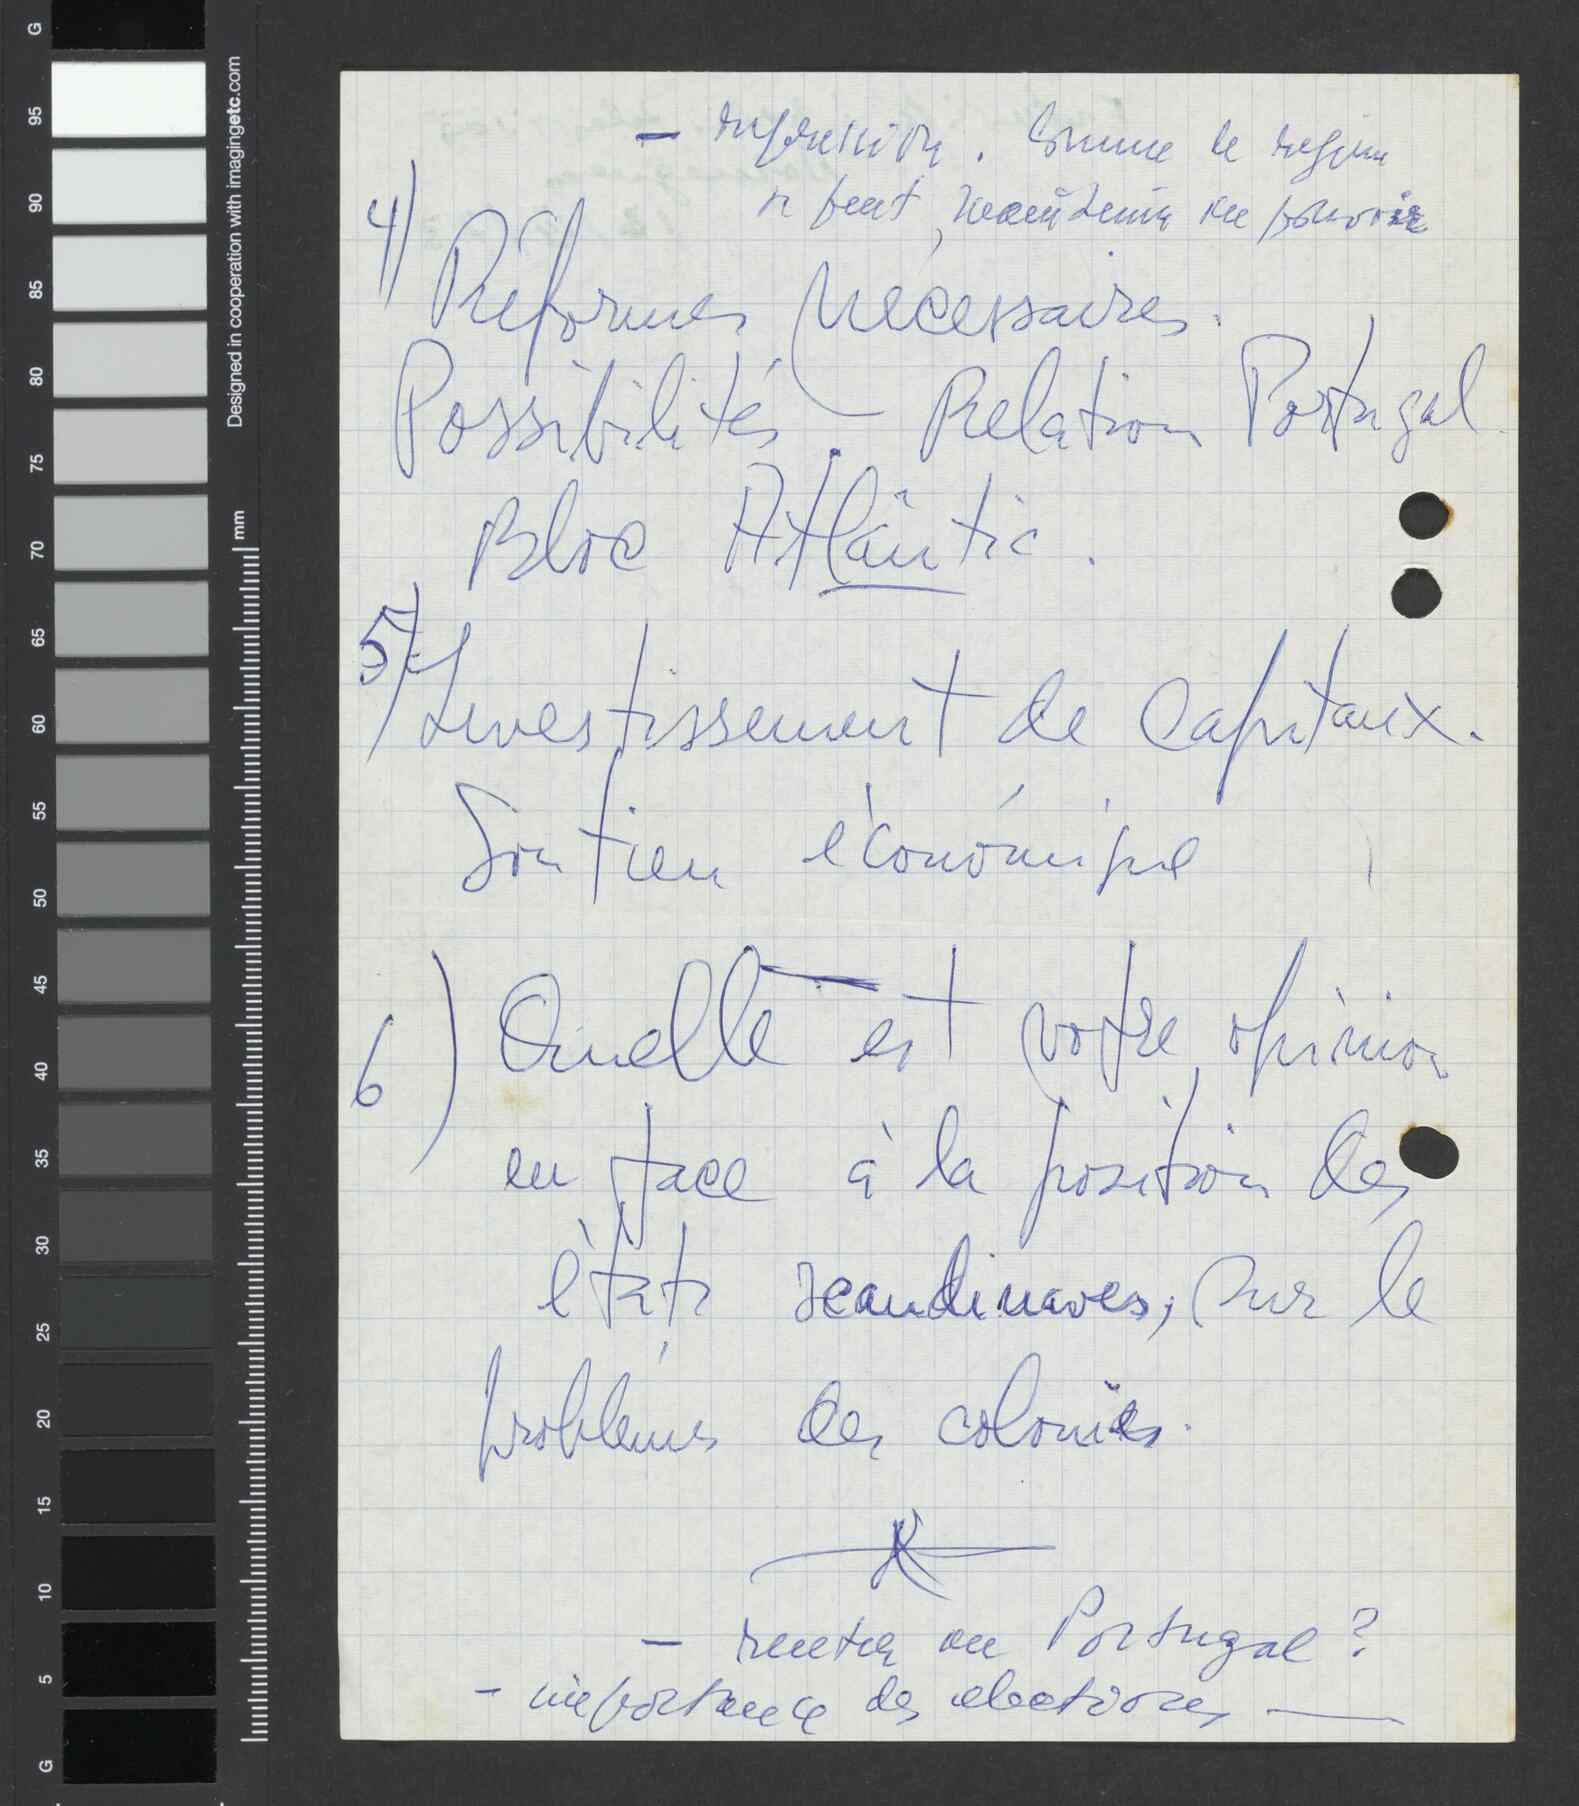 - repression. Comme le regime
se peut, maintenir au pouvoir
4) Réformes nécessaires.
Possibilités. Relation Portugal.
Bloc Atlântic.
5) Investissement de Capitaux.
Soutien économique
6) Quelle est votre opinion
en face à la position des
états scandinaves, sur le
problèmes des colonies.
- rentrer au Portugal?
- importance des elections
Designed in cooperation with imagingetc.com
mm
G
95
90
85
80
75
70
65
60
55
50
45
40
35
30
25
20
15
10
5
G